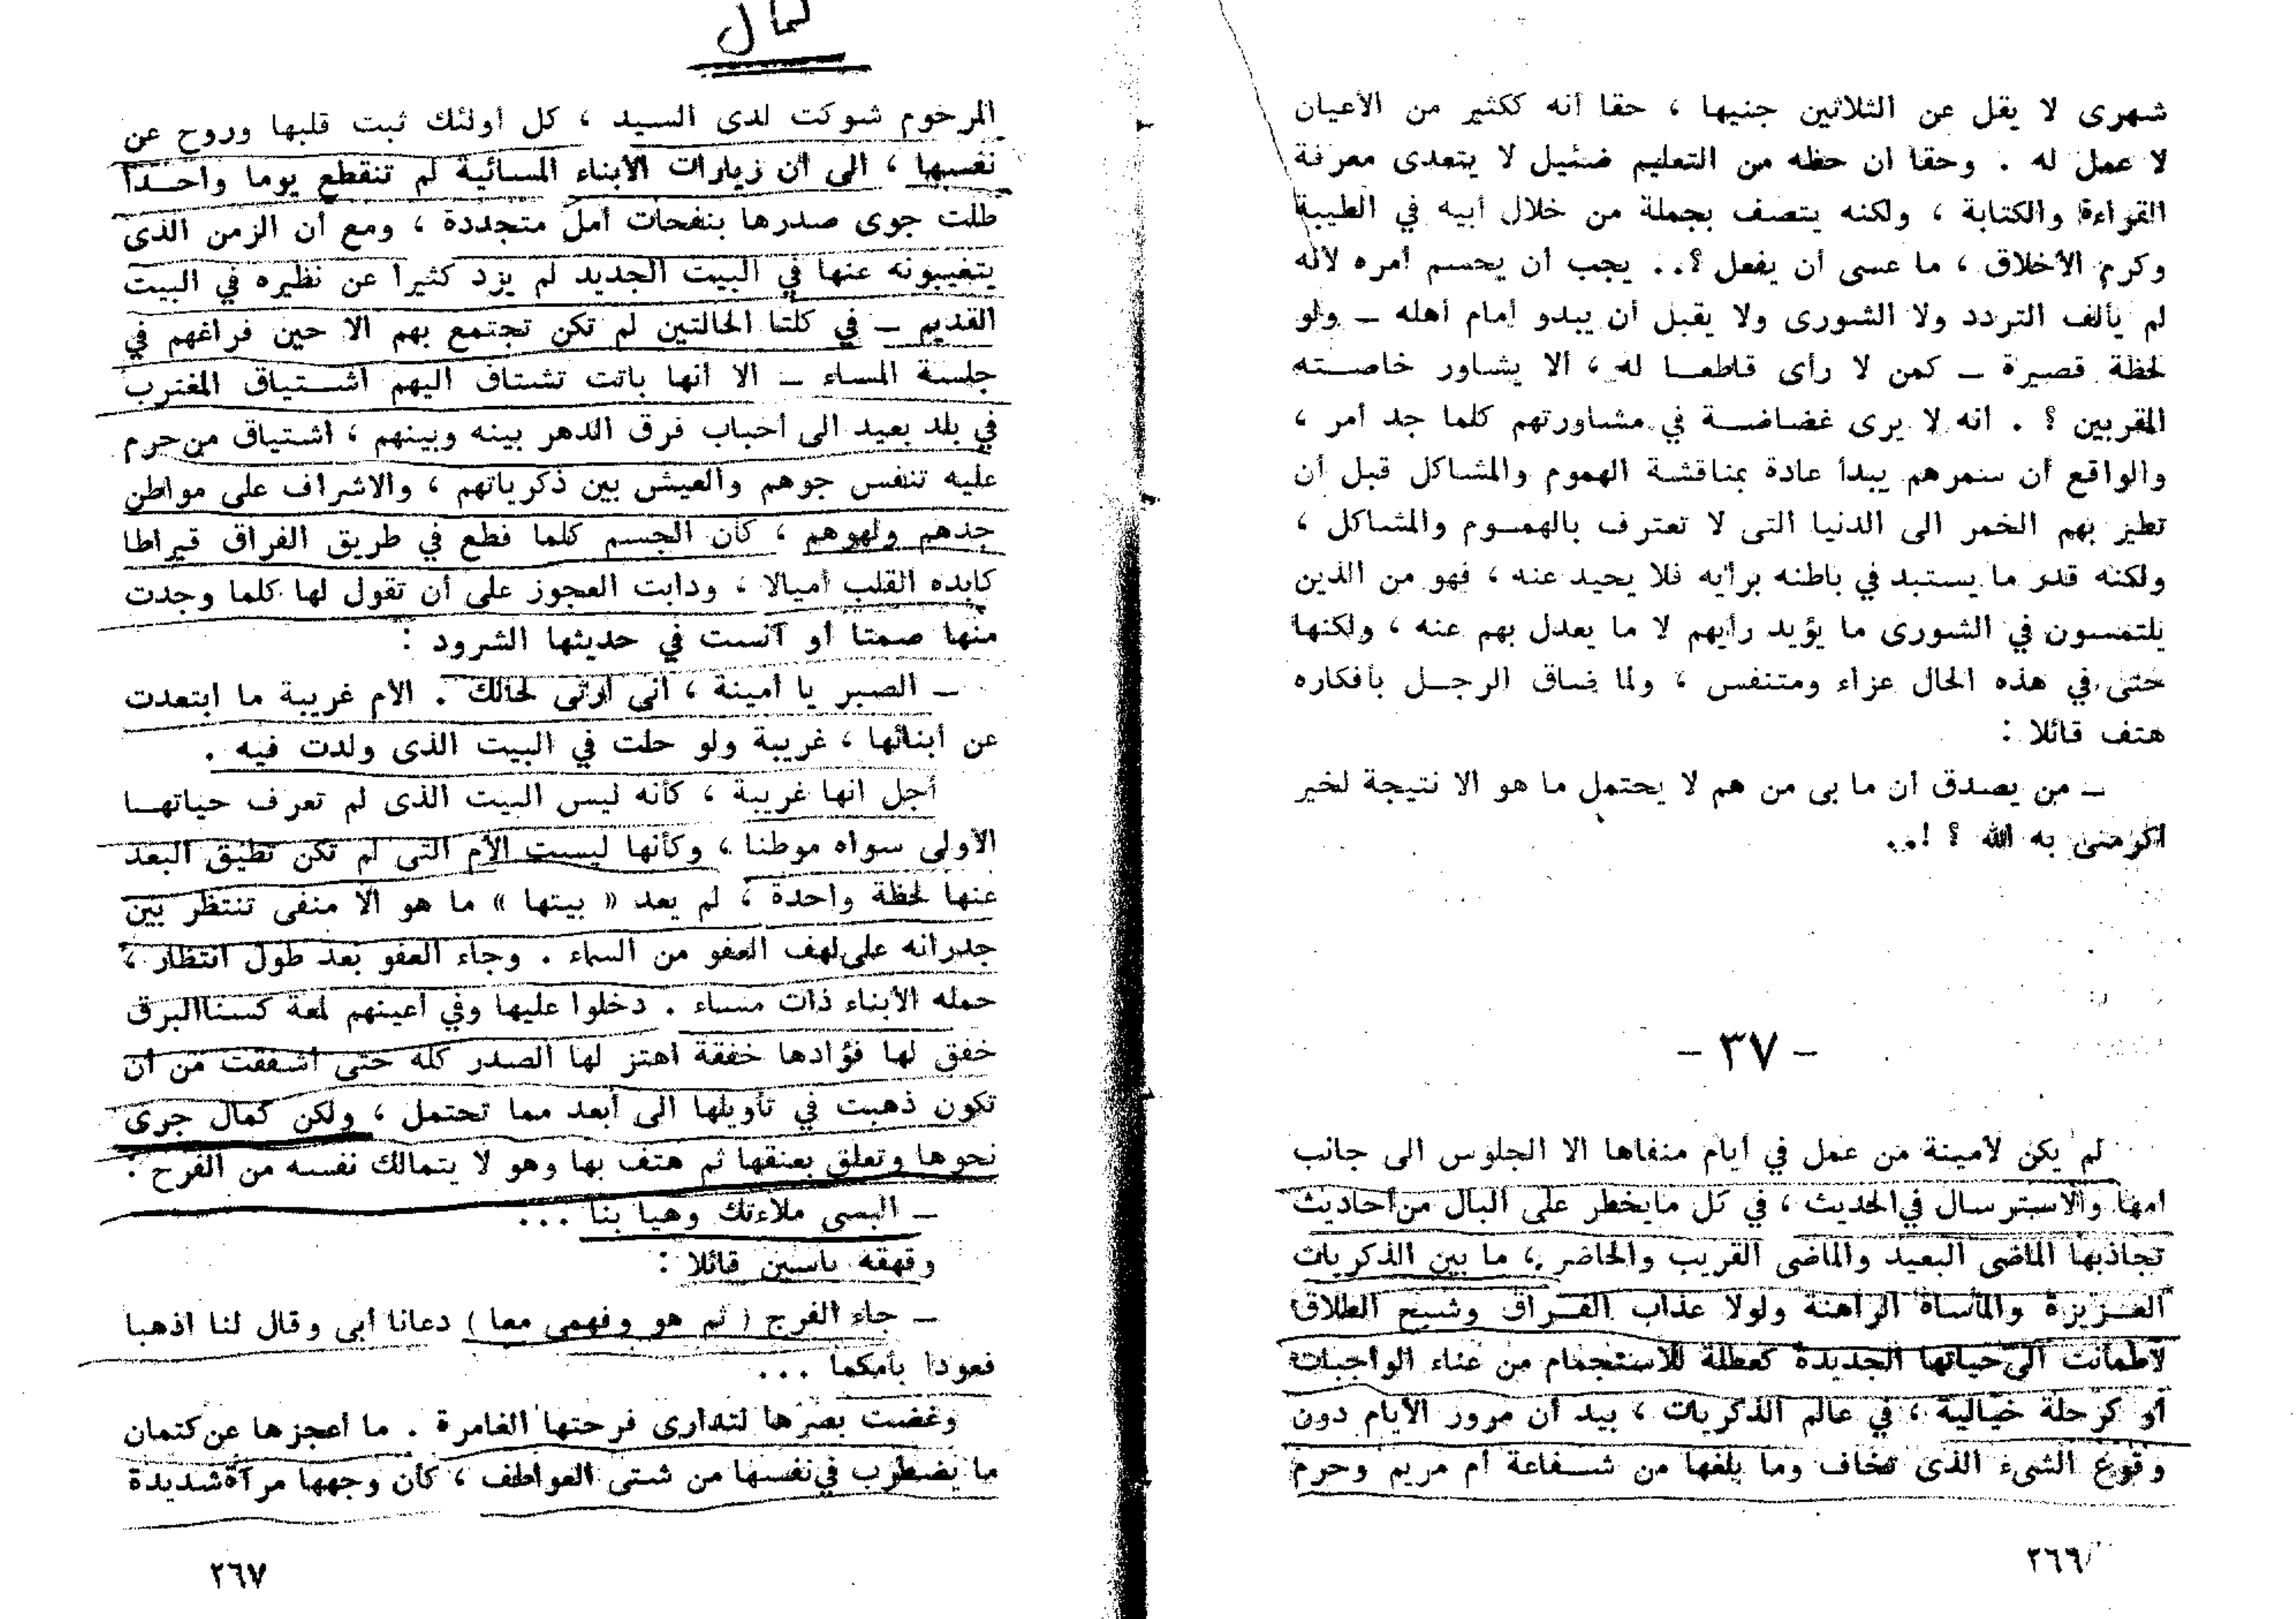 شهرى لا يقل عن الثلاثين جنيها ، حقا أنه ككثير من الأعيان
لا عمل له . وحقا ان حظه من التعليم ضئيل لا يتعدى معرفة
القراءة والكتابة ، ولكنه يتصف بجملة من خلال أبيه في الطيبة
وكرم الأخلاق ، ما عسى أن يفعل ؟.. يجب أن يحسم أمره لأنه
لم يألف التردد ولا الشورى ولا يقبل أن يبدو أمام أهله ــ ولو
لحظة قصيرة ــ كمن لا رأى قاطعا له ، ألا يشاور خاصته
المقربين ؟ . أنه لا يرى غضاضة في مشاورتهم كلما جد أمر ،
والواقع أن سمرهم يبدأ عادة بمناقشة الهموم والمشاكل قبل أن
تطير بهم الخمر الى الدنيا التى لا تعترف بالهموم والمشاكل ،
ولكنه قدر ما يستبد في باطنه برأيه فلا يحيد عنه ، فهو من الذين
يلتمسون في الشورى ما يؤيد رأيهم لا ما يعدل بهم عنه ، ولكنها
حتى في هذه الحال عزاء ومتنفس ، ولما ضاق الرجل بأفكاره
هتف قائلا :
ــ من يصدق أن ما بى من هم لا يحتمل ما هو الا نتيجة لخير
أكرمنى به الله ؟ !..
– ٣٧ –
لم يكن لأمينة من عمل في أيام منفاها الا الجلوس الى جانب
امها والاسترسال في الحديث ، في كل ما يخطر على البال من أحاديث
تجاذبها الماضى البعيد والماضى القريب والحاضر ، ما بين الذكريات
العزيزة والمأساة الراهنة ولولا عذاب الفراق وشبح الطلاق
لأطمأنت الى حياتها الجديدة كعطلة للاستجمام من عناء الواجبات
أو كرحلة خيالية ، في عالم الذكريات ، بيد أن مرور الأيام دون
وقوع الشىء الذى تخاف وما بلغها من شفاعة أم مريم وحرم
٢٦٦
كمال
المرحوم شوكت لدى السيد ، كل اولئك ثبت قلبها وروح عن
نفسها ، الى أن زيارات الأبناء المسائية لم تنقطع يوما واحدا
طلت جوى صدرها بنفحات أمل متجددة ، ومع أن الزمن الذى
يتغيبونه عنها في البيت الجديد لم يزد كثيرا عن نظيره في البيت
القديم ــ في كلتا الحالتين لم تكن تجتمع بهم الا حين فراغهم في
جلسة المساء ــ الا أنها باتت تشتاق اليهم اشتياق المغترب
في بلد بعيد الى أحباب فرق الدهر بينه وبينهم ، اشتياق من حرم
عليه تنفس جوهم والعيش بين ذكرياتهم ، والاشراف على مواطن
جدهم ولهوهم ، كأن الجسم كلما قطع في طريق الفراق قيراطا
كابده القلب أميالا ، ودابت العجوز على أن تقول لها كلما وجدت
منها صمتا أو آنست في حديثها الشرود :
ــ الصبر يا أمينة ، انى أرثى لحالك . الأم غريبة ما ابتعدت
عن أبنائها ، غريبة ولو حلت في البيت الذى ولدت فيه .
أجل انها غريبة ، كأنه ليس البيت الذى لم تعرف حياتها
الأولى سواه موطنا ، وكأنها ليست الأم التى لم تكن تطيق البعد
عنها لحظة واحدة ، لم يعد « بيتها » ما هو الا منفى تنتظر بين
جدرانه على لهف العفو من السماء . وجاء العفو بعد طول انتظار ،
حمله الأبناء ذات مساء . دخلوا عليها وفي أعينهم لمعة كسنا البرق
خفق لها فؤادها خفقة اهتز لها الصدر كله حتى أشفقت من أن
تكون ذهبت في تأويلها الى أبعد مما تحتمل ، ولكن كمال جرى
نحوها وتعلق بعنقها ثم هتف بها وهو لا يتمالك نفسه من الفرح :
ــ البسى ملاءتك وهيا بنا ...
وقهقه ياسين قائلا :
ــ جاء الفرج ( ثم هو وفهمى معا ) دعانا أبى وقال لنا اذهبا
فعودا بأمكما ...
وغضت بصرها لتدارى فرحتها الغامرة . ما أعجزها عن كتمان
ما يضطرب في نفسها من شتى العواطف ، كأن وجهها مرآة شديدة
٢٦٧